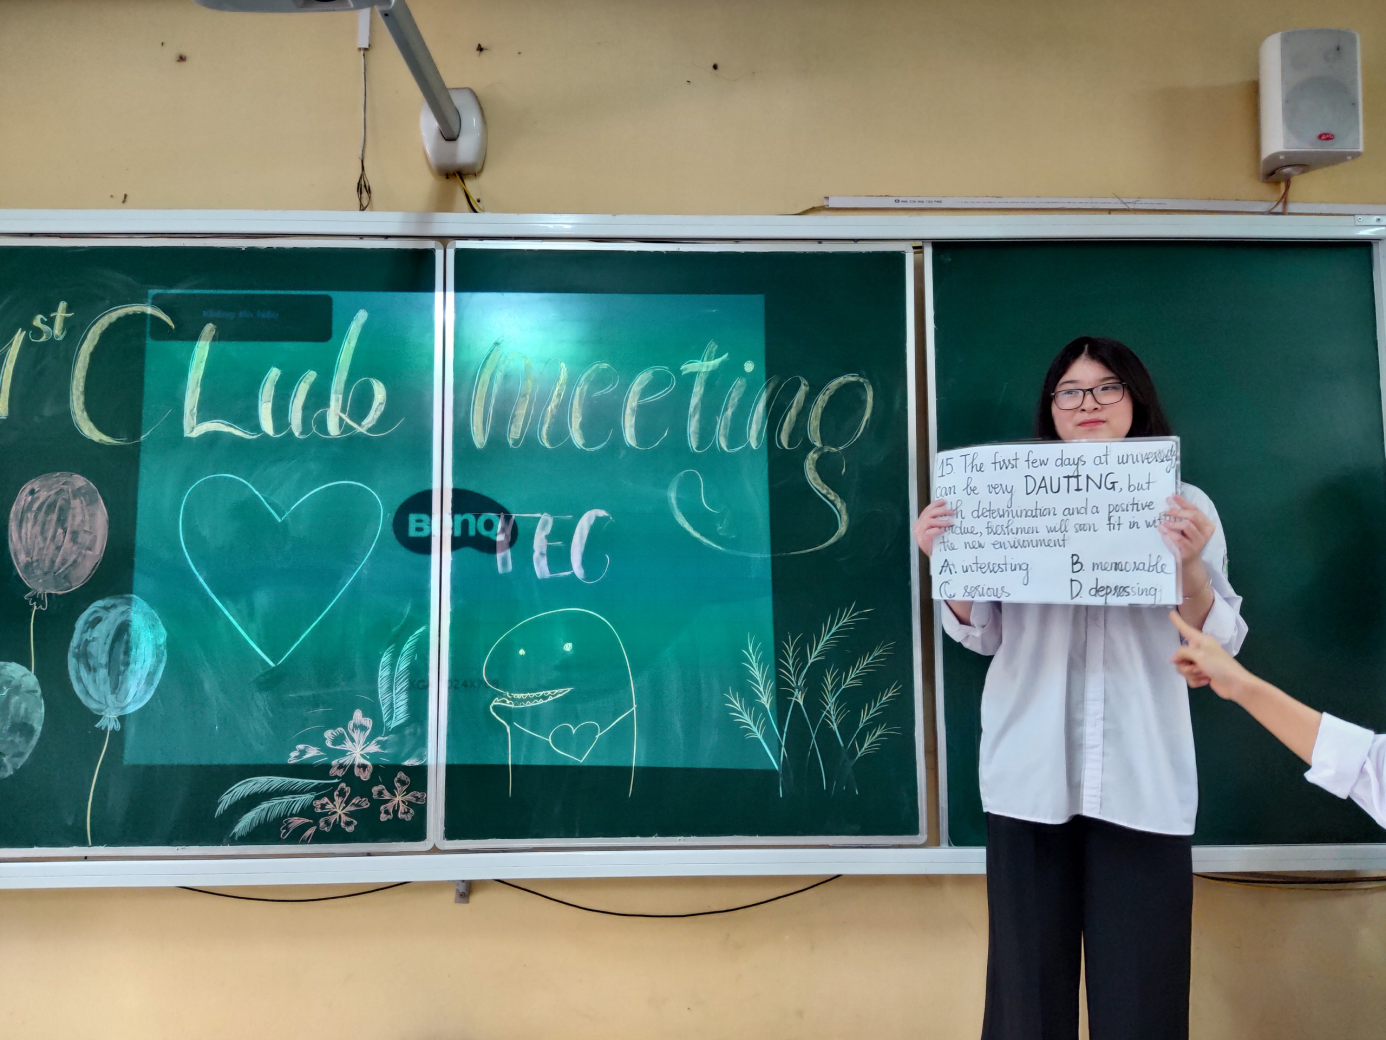 1st Club meeting
BenQ
TEC
15. The first few days at university
can be very DAUTING, but
determination and a positive
freshmen will soon fit in with
the new environment
A. interesting B. memorable
C. serious D. depressing